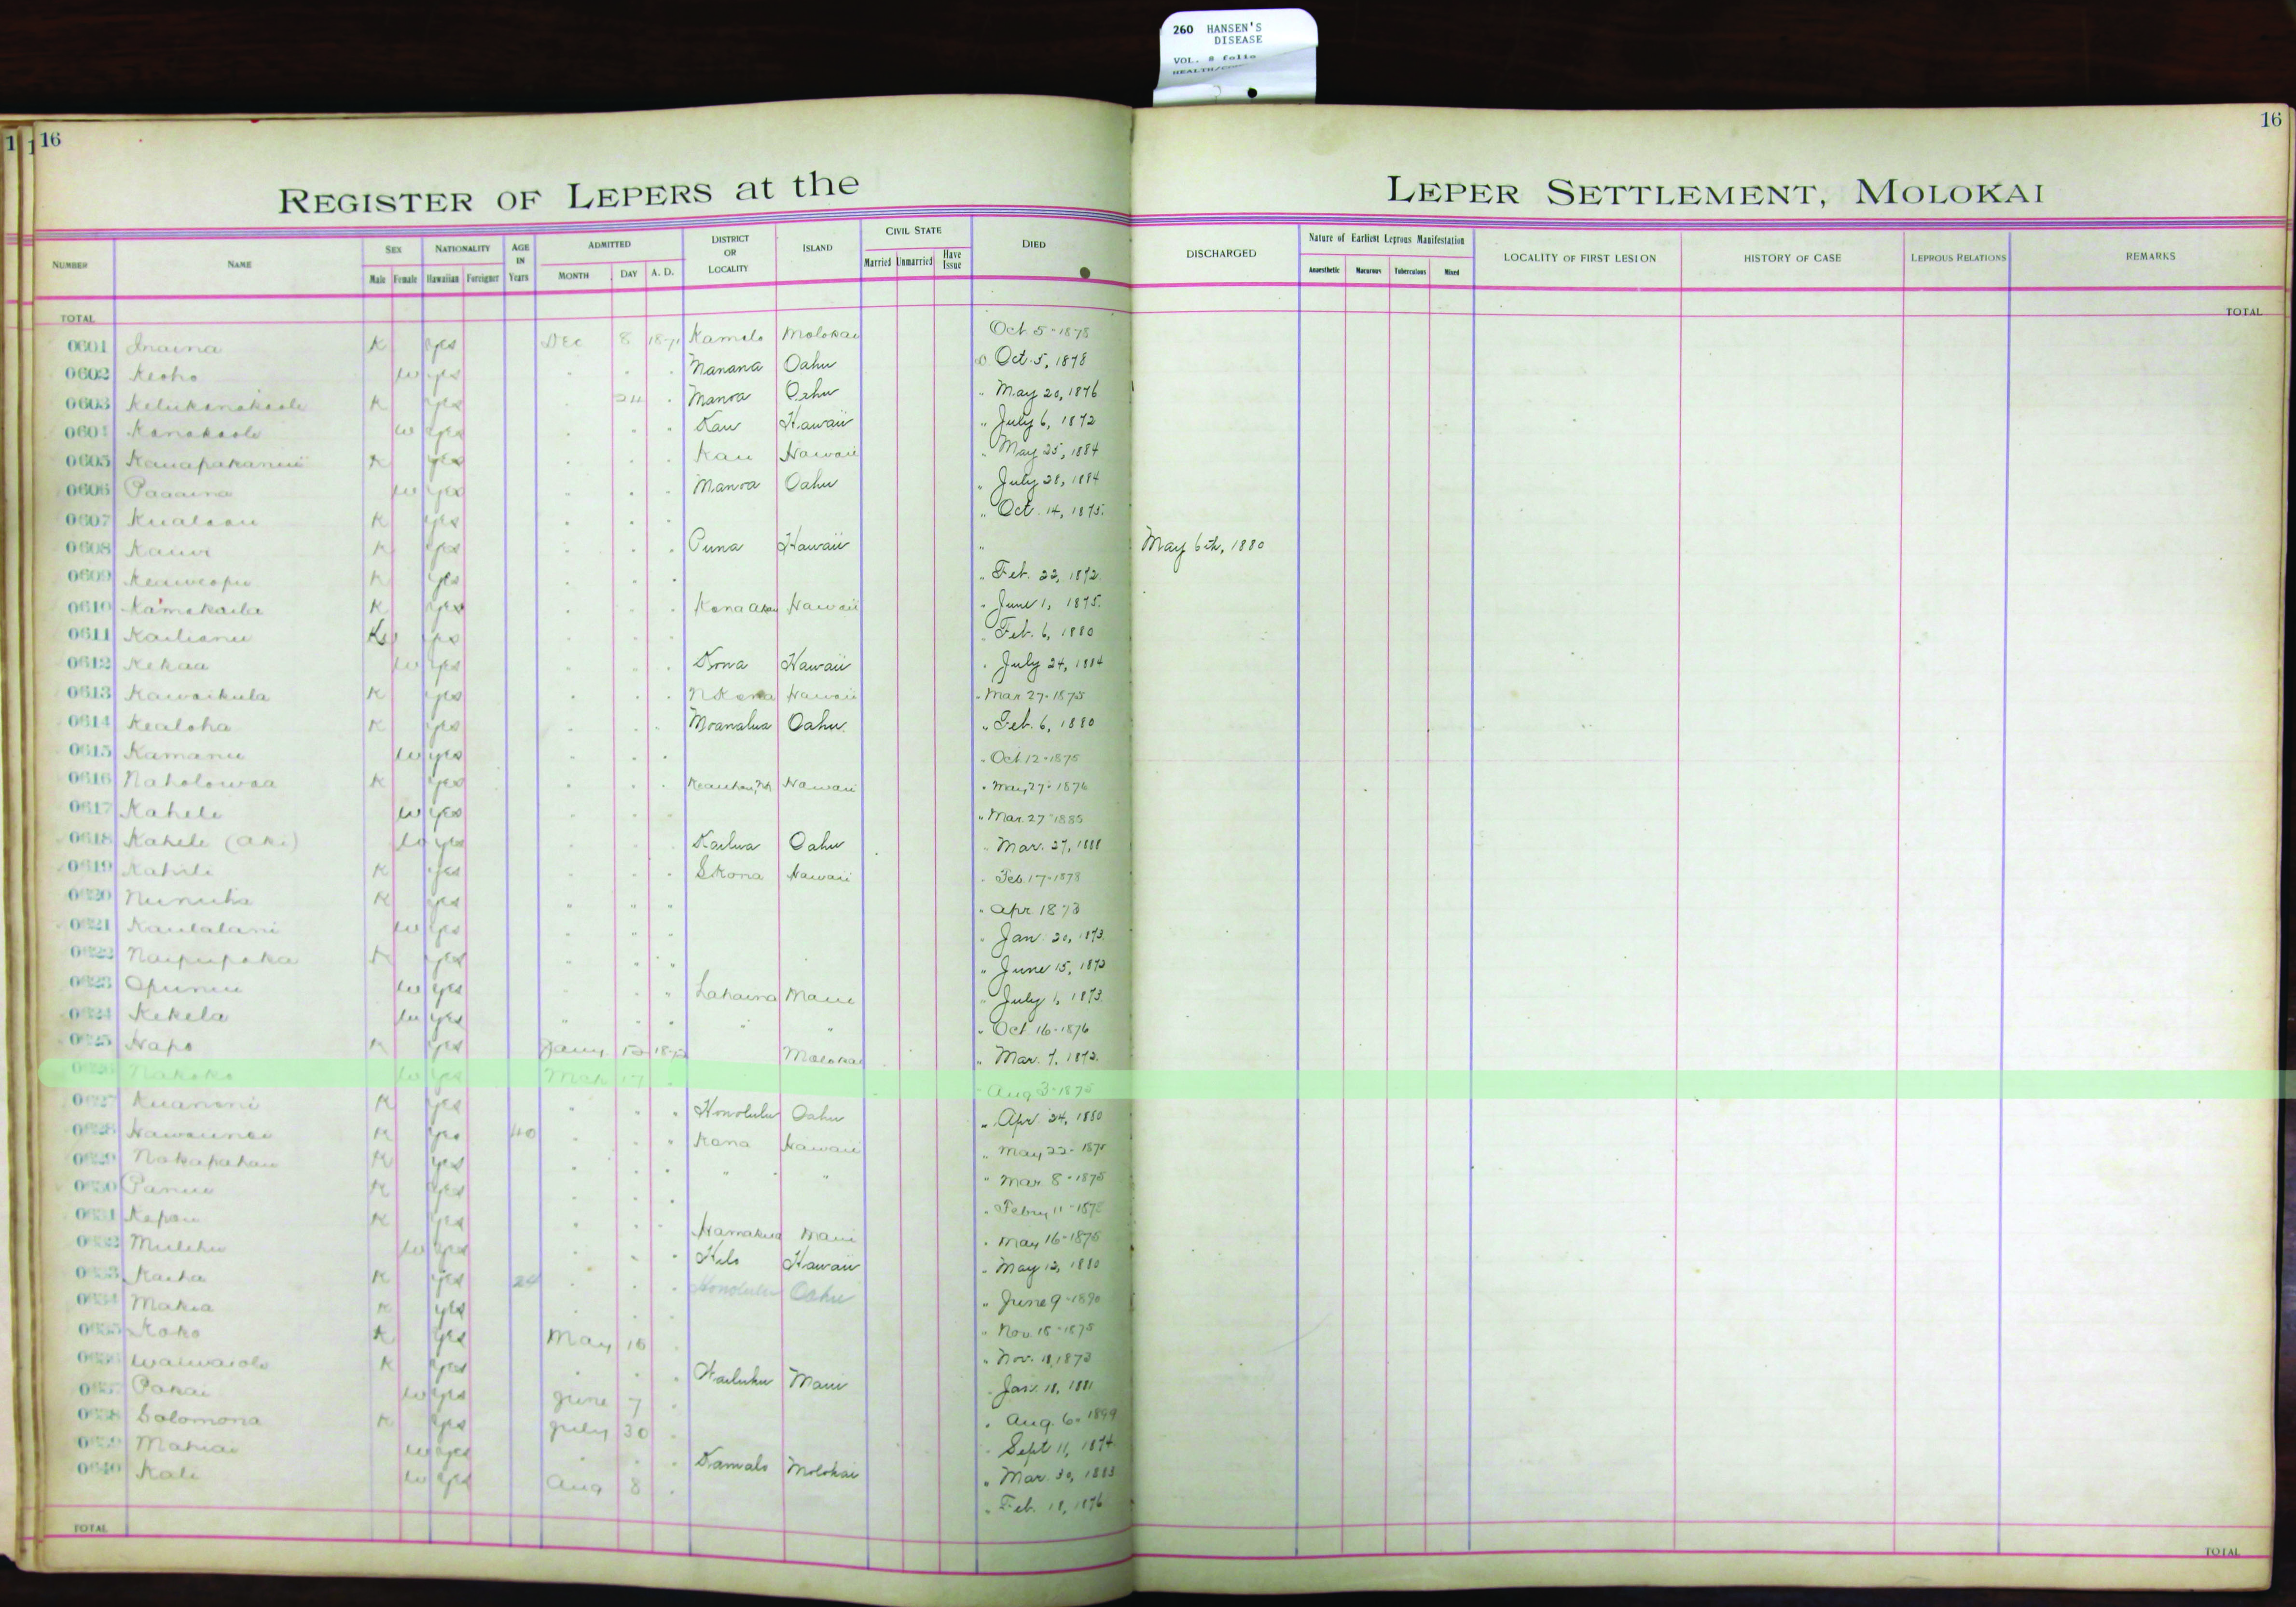 260 HANSEN'S
DISEASE
VOL. 8 folio
16
16
REGISTER OF LEPERS at the
LEPER SETTLEMENT, MOLOKAI
NUMBER NAME SEX Male Female NATIONALITY Hawaiian Foreigner AGE IN Years ADMITTED MONTH DAY A. D. DISTRICT OR LOCALITY ISLAND CIVIL STATE Married Unmarried Have Issue DIED
DISCHARGED Nature of Earliest Leprous Manifestation Anaesthetic Macurous Tuberculous Mixed LOCALITY OF FIRST LESION HISTORY OF CASE LEPROUS RELATIONS REMARKS
TOTAL TOTAL
0601 Inaina K yes Dec 8 Kamalo Molokai Oct 5-1878
0602 Keoho w yes Manana Oahu Oct. 5, 1878
0603 K yes 24 Manoa Oahu " May 20, 1876
0604 Kanakaole w yes Kau Hawaii " July 6, 1872
0605 Kauapakanui K yes Kau Hawaii " May 25, 1884
0606 w yes Manoa Oahu " July 28, 1884
0607 Kualaau K yes " Oct. 14, 1875.
0608 Kauwi K yes Puna Hawaii " May 6th, 1880
0609 Keaweopu K yes " Feb. 22, 1872.
0610 Kamakaila K yes Kona akau Hawaii " June 1, 1875.
0611 Kailianu yes Feb. 6, 1880
0612 Kekaa w yes Kona Hawaii " July 24, 1884
0613 Kawaikula K yes N Kona Hawaii " Mar 27-1875
0614 Kealoha K yes Moanalua Oahu " Feb. 6, 1880
0615 Kamanu w yes " Oct 12-1875
0616 Naholowaa K yes Keauhou, Hawaii " May 27-1876
0617 Kahele w yes " Mar. 27-1885
0618 Kahele (aki) w yes Kailua Oahu " Mar. 27, 1888
0619 Kahili K yes S Kona Hawaii " Feb. 17-1878
0620 Nunuha K yes " " " " Apr. 1873
0621 Kaulalani w yes " Jan. 20, 1873.
0622 Naipupaka K yes " June 15, 1872
0623 Opunui w yes Lahaina Maui " July 1, 1873.
0624 Kekela w yes " " " Oct 16-1876
0625 Hapo K yes Jany 1872 Molokai " Mar. 7, 1872.
Nakoko w yes Mch 17 " Aug 3-1875
Kuanoni K yes Honolulu Oahu " Apr. 24, 1880
K yes 40 Kona Hawaii " May 22-1875
Nakapahau K yes " " " Mar. 8-1875
Panui K yes " Febry 11-1872
Kapau K yes Hamakua Maui " May 16-1875
Mulehu w yes Hilo Hawaii " May 12, 1880
Kaiha K yes 24 Honolulu Oahu " June 9-1890
Makia K yes " Nov. 18-1875
Koko K yes May 18 " Nov. 11, 1873
Waiwaiole K yes Wailuku Maui Jan. 18, 1881
Pakai w yes June 7 " Aug. 6-1899
Solomona K yes July 30 Sept 11, 1874
Mahiai w yes Kamalo Molokai " Mar. 30, 1883
0640 Kali w yes Aug 8 " Feb. 18, 1876
TOTAL TOTAL